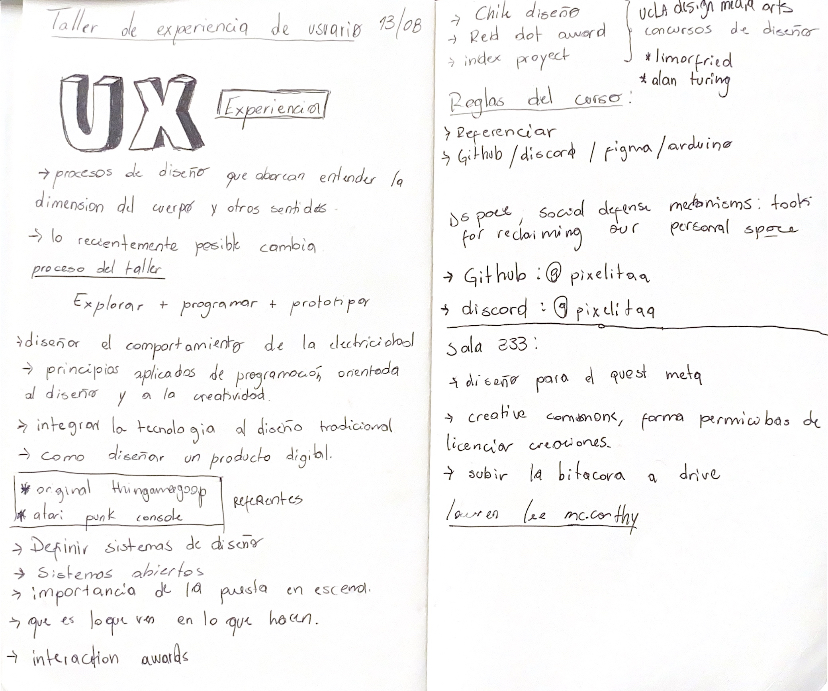 Taller de experiencia de usuario 13/08
UX
Experiencia
→ procesos de diseño que abarcan entender la
dimension del cuerpo y otros sentidos.
→ lo recientemente posible cambia
proceso del taller
Explorar + programar + prototipar
→ diseñar el comportamiento de la electricidad
→ principios aplicados de programación orientada
al diseño y a la creatividad.
→ integrar la tecnologia al diseño tradicional
→ como diseñar un producto digital.
* original thingamagoop
* atari punk console
REFERENTES
→ Definir sistemas de diseño
→ Sistemas abiertos
→ importancia de la puesta en escena.
→ que es lo que ven en lo que hacen.
→ interaction awards
→ Chile diseño
→ Red dot award
→ index proyect
UCLA design media arts
concursos de diseño
* limorfried
* alan turing
Reglas del curso:
→ Referenciar
→ Github / discord / figma / arduino
space, social defense mechanisms: tools
for reclaiming our personal space
→ Github : @pixelitaa
→ discord : @pixelitaa
Sala 233:
→ diseño para el quest meta
→ creative commons, forma de
licenciar creaciones.
→ subir la bitacora a drive
lauren lee mc.carthy